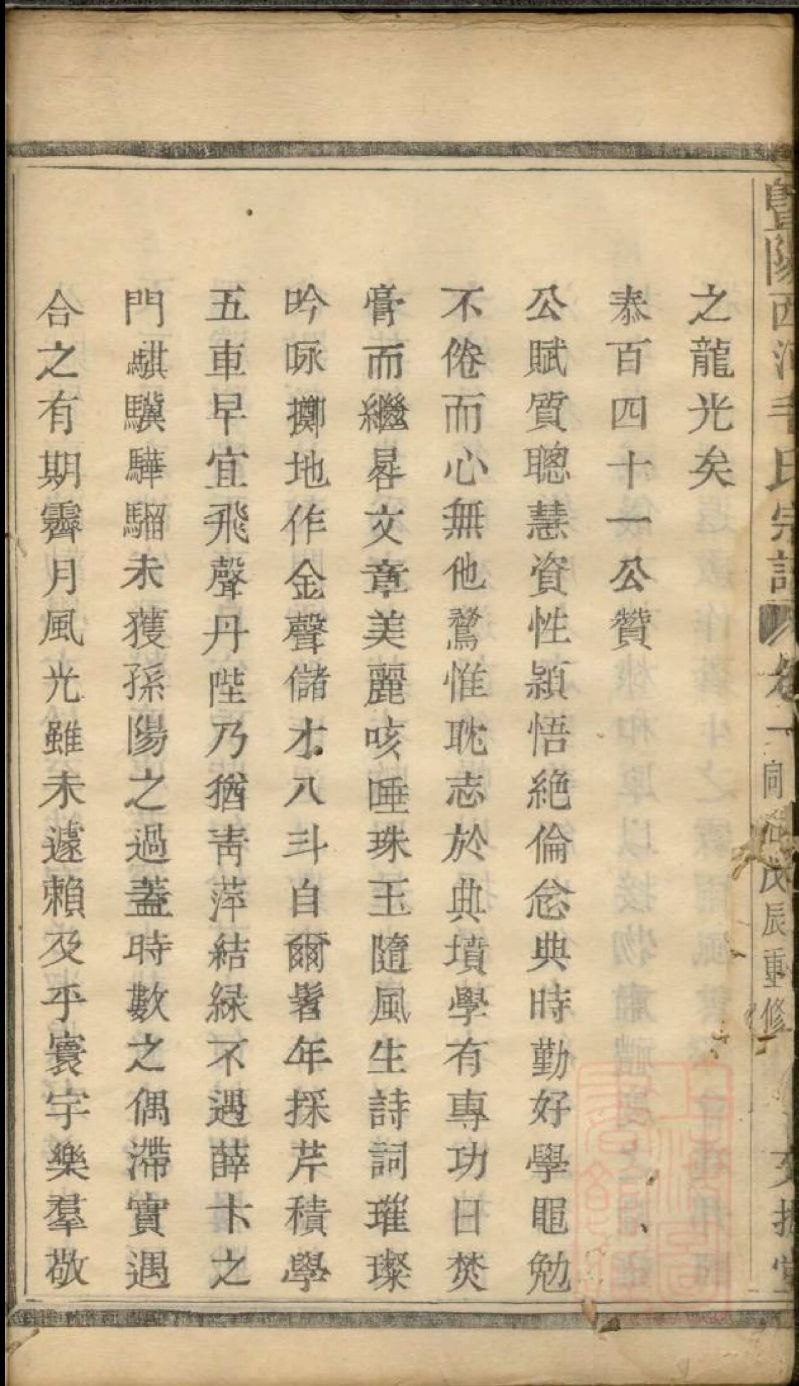 暨陽西河毛氏宗譜 卷一 同治戊辰重修
之龍光矣
泰百四十一公贊
公賦質聰慧資性穎悟絶倫念典時勤好學黽勉
不倦而心無他騖惟耽志於典墳學有專功日焚
膏而繼晷文章美麗咳唾珠玉隨風生詩詞璀璨
吟咏擲地作金聲儲才八斗自爾髫年採芹積學
五車早宜飛聲丹陛乃猶靑萍結綠不遇薛卞之
門騏驥驊騮未獲孫陽之過蓋時數之偶滯實遇
合之有期霽月風光雖未遽賴及乎寰宇樂羣敬